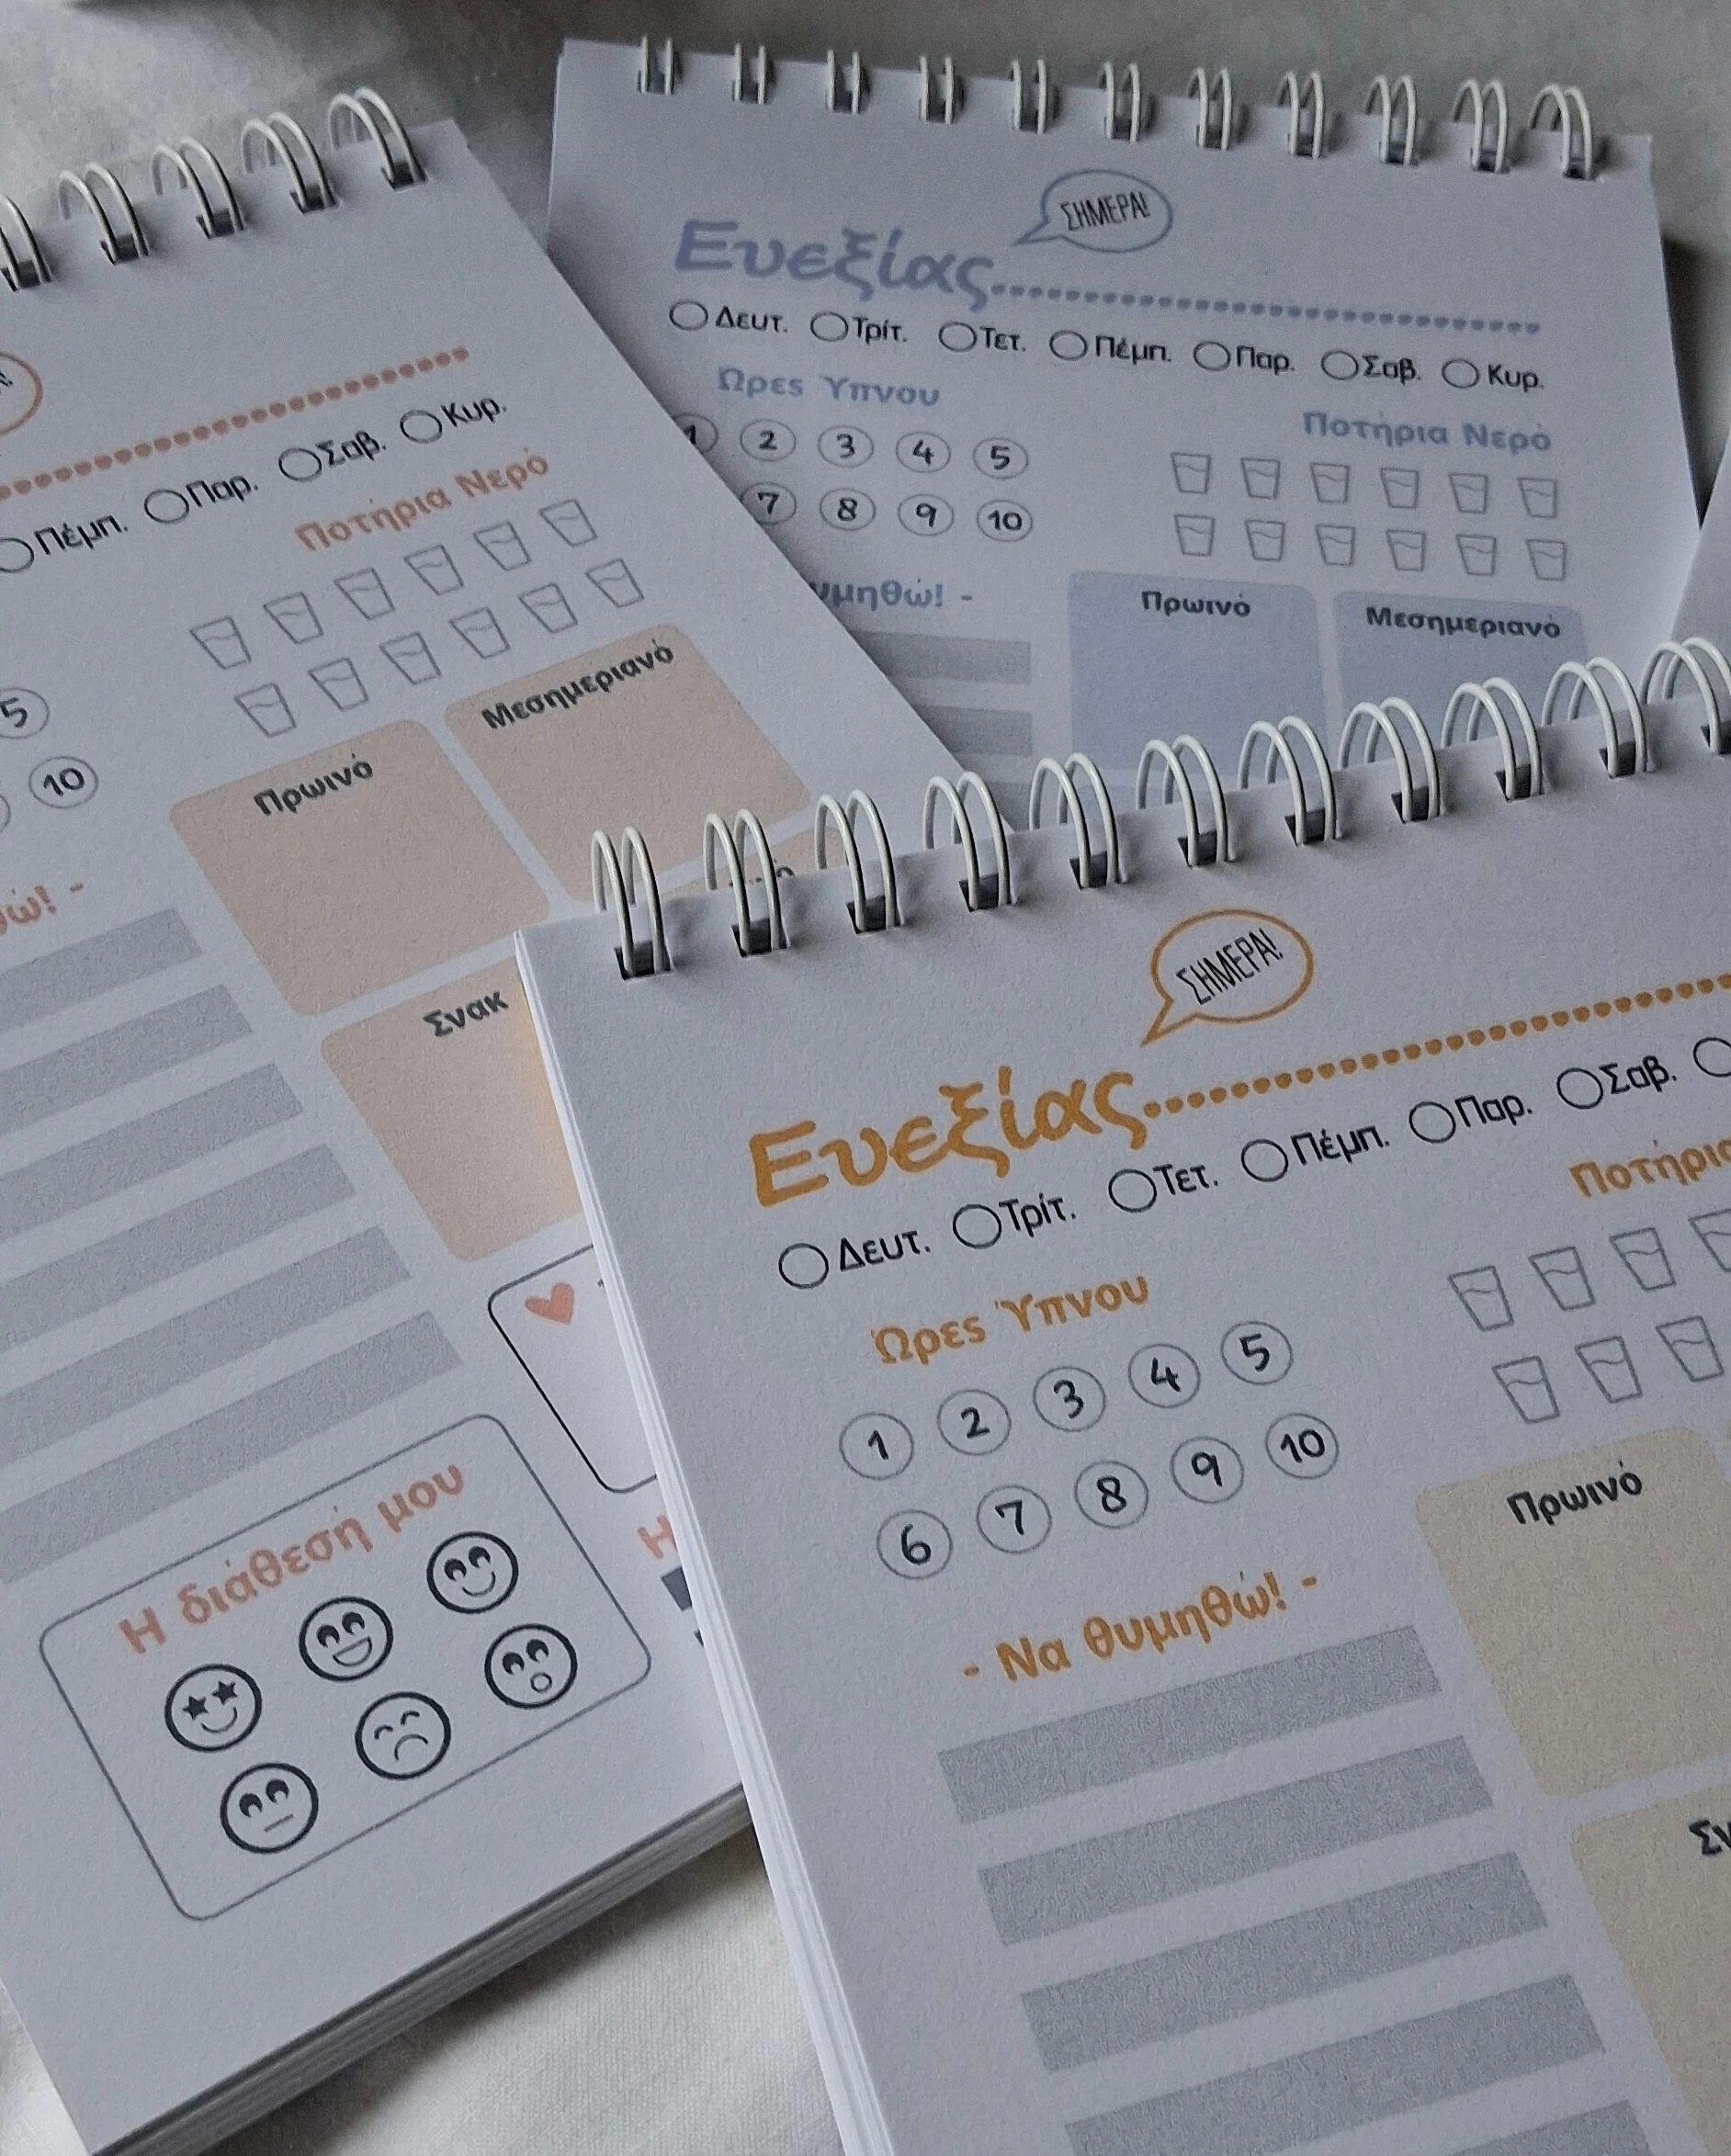 ΣΗΜΕΡΑ!
Ευεξίας
Δευτ. Τρίτ. Τετ. Πέμπ. Παρ. Σαβ. Κυρ.
Ώρες Ύπνου
Ποτήρια Νερό
1 2 3 4 5
7 8 9 10
Πρωινό Μεσημεριανό
Πέμπ. Παρ. Σαβ. Κυρ.
Ποτήρια Νερό
5
10
Πρωινό Μεσημεριανό
Σνακ
Η διάθεσή μου
ΣΗΜΕΡΑ!
Ευεξίας
Δευτ. Τρίτ. Τετ. Πέμπ. Παρ. Σαβ.
Ώρες Ύπνου
1 2 3 4 5
6 7 8 9 10
- Να θυμηθώ! -
Πρωινό